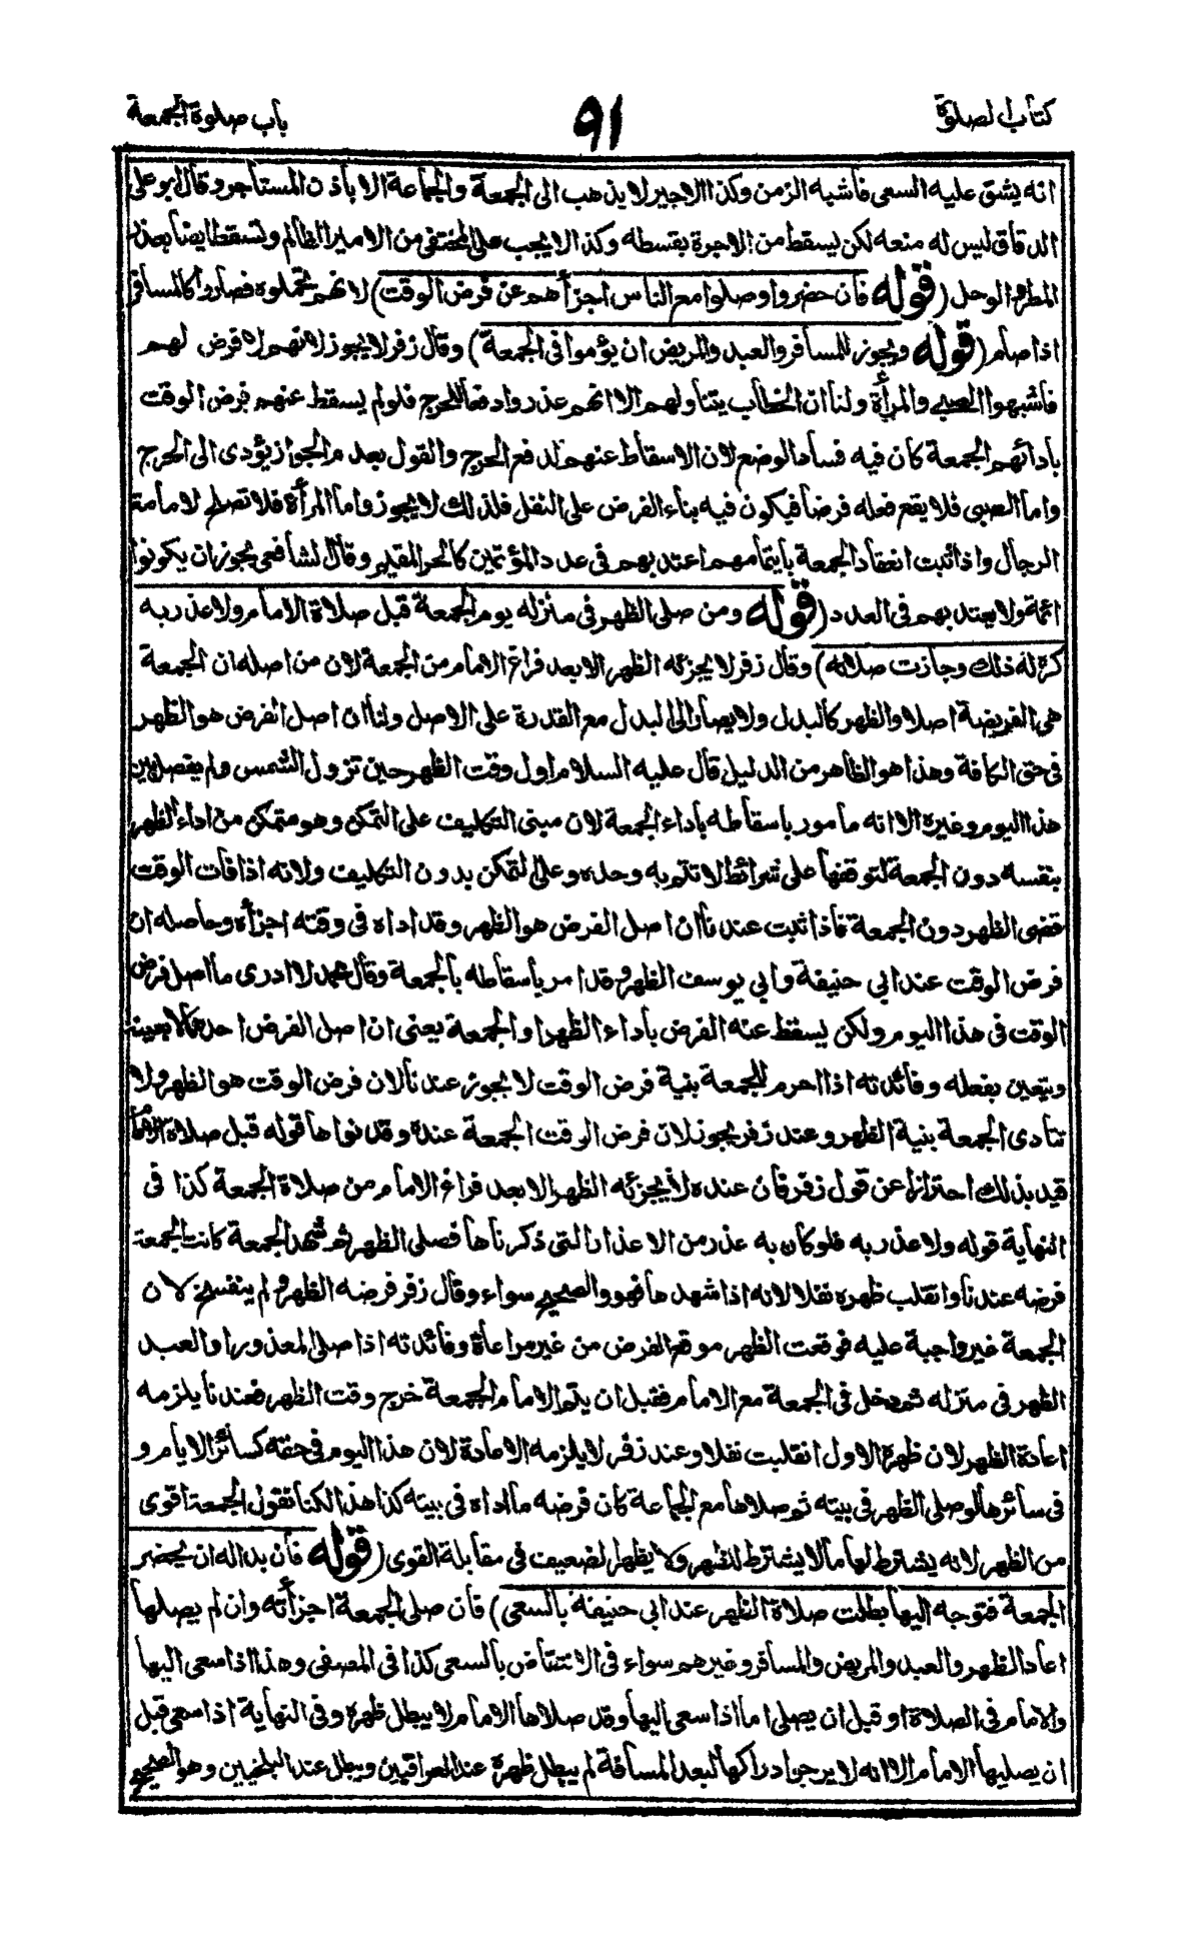 كتاب الصلوة
٩١
باب صلوة الجمعة
انه يشق عليه السعى فأشبه الزمن وكذا الاجير لا يذهب الى الجمعة والجماعة الا بأذن المستأجر وقال ابو على
الدقاق ليس له منعه لكن يسقط من الاجرة بقسطه وكذا لا يجب على المختفى من الامير الظالم وتسقط ايضا بعذر
المطر والوحل (قوله فأن حضروا وصلوا مع الناس اجزأهم عن فرض الوقت) لانهم تحملوه فصاروا كالمسافر
اذا صام (قوله ويجوز للمسافر والعبد والمريض ان يؤموا فى الجمعة) وقال زفر لا يجوز لانهم لا فرض لهم
فأشبهوا الصبى والمرأة ولنا ان الخطاب يتناولهم الا انهم عذروا دفعا للحرج فلو لم يسقط عنهم فرض الوقت
بأدائهم الجمعة كان فيه فساد الوضع لان الاسقاط عنهم لدفع الحرج والقول بعدم الجواز يؤدى الى الحرج
واما الصبى فلا يقع فعله فرضا فيكون فيه بناء الفرض على النفل فلذلك لا يجوز واما المرأة فلا تصلح لامامة
الرجال واذا ثبت انعقاد الجمعة بأيتمامهم اعتد بهم فى عدد المؤتمين كالحر المقيم وقال الشافعى يجوز ان يكونوا
ائمة ولا يعتد بهم فى العدد (قوله ومن صلى الظهر فى منزله يوم الجمعة قبل صلاة الامام ولا عذر به
كره له ذلك وجازت صلاته) وقال زفر لا يجزئه الظهر الا بعد فراغ الامام من الجمعة لان من اصله ان الجمعة
هى الفريضة اصلا والظهر كالبدل ولا يصار الى البدل مع القدرة على الاصل ولنا ان اصل الفرض هو الظهر
فى حق الكافة وهذا هو الظاهر من الدليل قال عليه السلام اول وقت الظهر حين تزول الشمس ولم يفصل بين
هذا اليوم وغيره الا انه مأمور بأسقاطه بأداء الجمعة لان مبنى التكليف على التمكن وهو متمكن من اداء الظهر
بنفسه دون الجمعة لتوقفها على شرائط لا تتم به وحده وعلى التمكن بدون التكليف ولانه اذا فات الوقت
قضى الظهر دون الجمعة فأذا ثبت عندنا ان اصل الفرض هو الظهر وقد اداه فى وقته اجزأه وحاصله ان
فرض الوقت عند ابى حنيفة وابى يوسف الظهر وقد امر بأسقاطه بالجمعة وقال محمد لا ادرى ما اصل فرض
الوقت فى هذا اليوم ولكن يسقط عنه الفرض بأداء الظهر او الجمعة يعنى ان اصل الفرض احدهما لا بعينه
ويتعين بفعله وفائدته اذا احرم للجمعة بنية فرض الوقت لا يجوز عندنا لان فرض الوقت هو الظهر ولا
تتأدى الجمعة بنية الظهر وعند زفر يجوز لان فرض الوقت الجمعة عنده وقد نواها قوله قبل صلاة الامام
قيد بذلك احترازا عن قول زفر فأن عنده لا يجزئه الظهر الا بعد فراغ الامام من صلاة الجمعة كذا فى
النهاية قوله ولا عذر به فلو كان به عذر من الاعذار التى ذكرناها فصلى الظهر ثم شهد الجمعة كانت الجمعة
فرضه عندنا وانقلب ظهره نفلا لانه اذا شهدها فهو والصحيح سواء وقال زفر فرضه الظهر ولم ينفسخ لان
الجمعة غير واجبة عليه فوقعت الظهر موقع الفرض من غير مراعاة وفائدته اذا صلى المعذور او العبد
الظهر فى منزله ثم دخل فى الجمعة مع الامام فقبل ان يتم الامام الجمعة خرج وقت الظهر فعندنا يلزمه
اعادة الظهر لان ظهره الاول انقلبت نفلا وعند زفر لا يلزمه الاعادة لان هذا اليوم فى حقه كسائر الايام و
فى سائرها لو صلى الظهر فى بيته ثم صلاها مع الجماعة كان فرضه ما اداه فى بيته كذا هذا لكنا نقول الجمعة اقوى
من الظهر لانه يشترط لها ما لا يشترط للظهر ولا يظهر الضعيف فى مقابلة القوى (قوله فأن بدا له ان يحضر
الجمعة فتوجه اليها بطلت صلاة الظهر عند ابى حنيفة بالسعى) فأن صلى الجمعة اجزأته وان لم يصلها
اعاد الظهر والعبد والمريض والمسافر وغيرهم سواء فى الانتقاض بالسعى كذا فى المصفى وهذا اذا سعى اليها
والامام فى الصلاة او قبل ان يصلى اما اذا سعى اليها وقد صلاها الامام لا يبطل ظهره وفى النهاية اذا سعى قبل
ان يصليها الامام الا انه لا يرجو ادراكها لبعد المسافة لم يبطل ظهره عند العراقيين ويبطل عند البلخيين وهو الصحيح